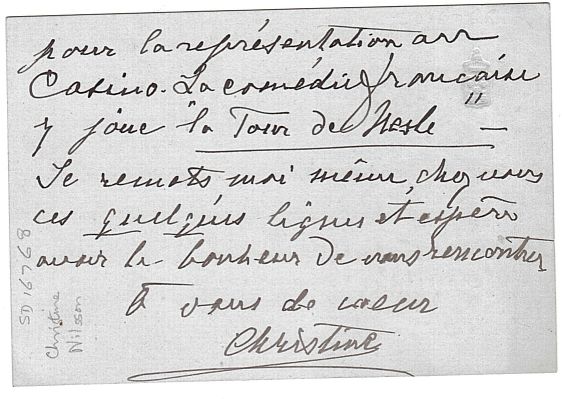 pour la représentation au
Casino. La comédie française
y joue "la Tour de Nesle" —
Je remets moi même, chez vous
ces quelques lignes et espère
avoir le bonheur de vous rencontrer
à vous de coeur
Christine
SD 16768
Christine
Nilsson